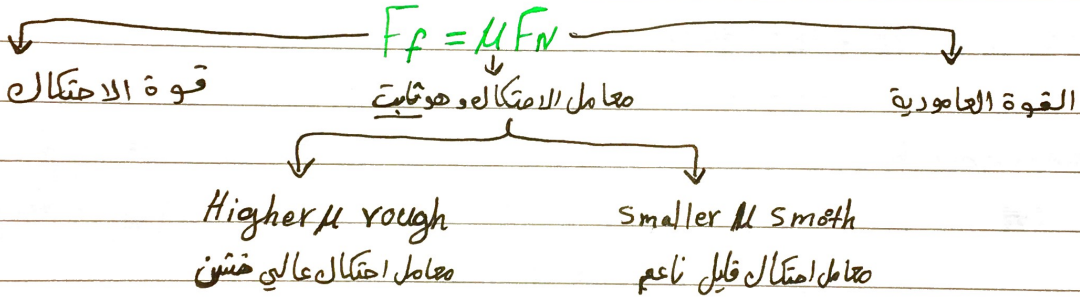 Ff = μFN
قوة الاحتكاك
معامل الاحتكاك وهو ثابت
القوة العامودية
Higher μ rough
smaller μ smoth
معامل احتكاك عالي خشن
معامل احتكاك قليل ناعم